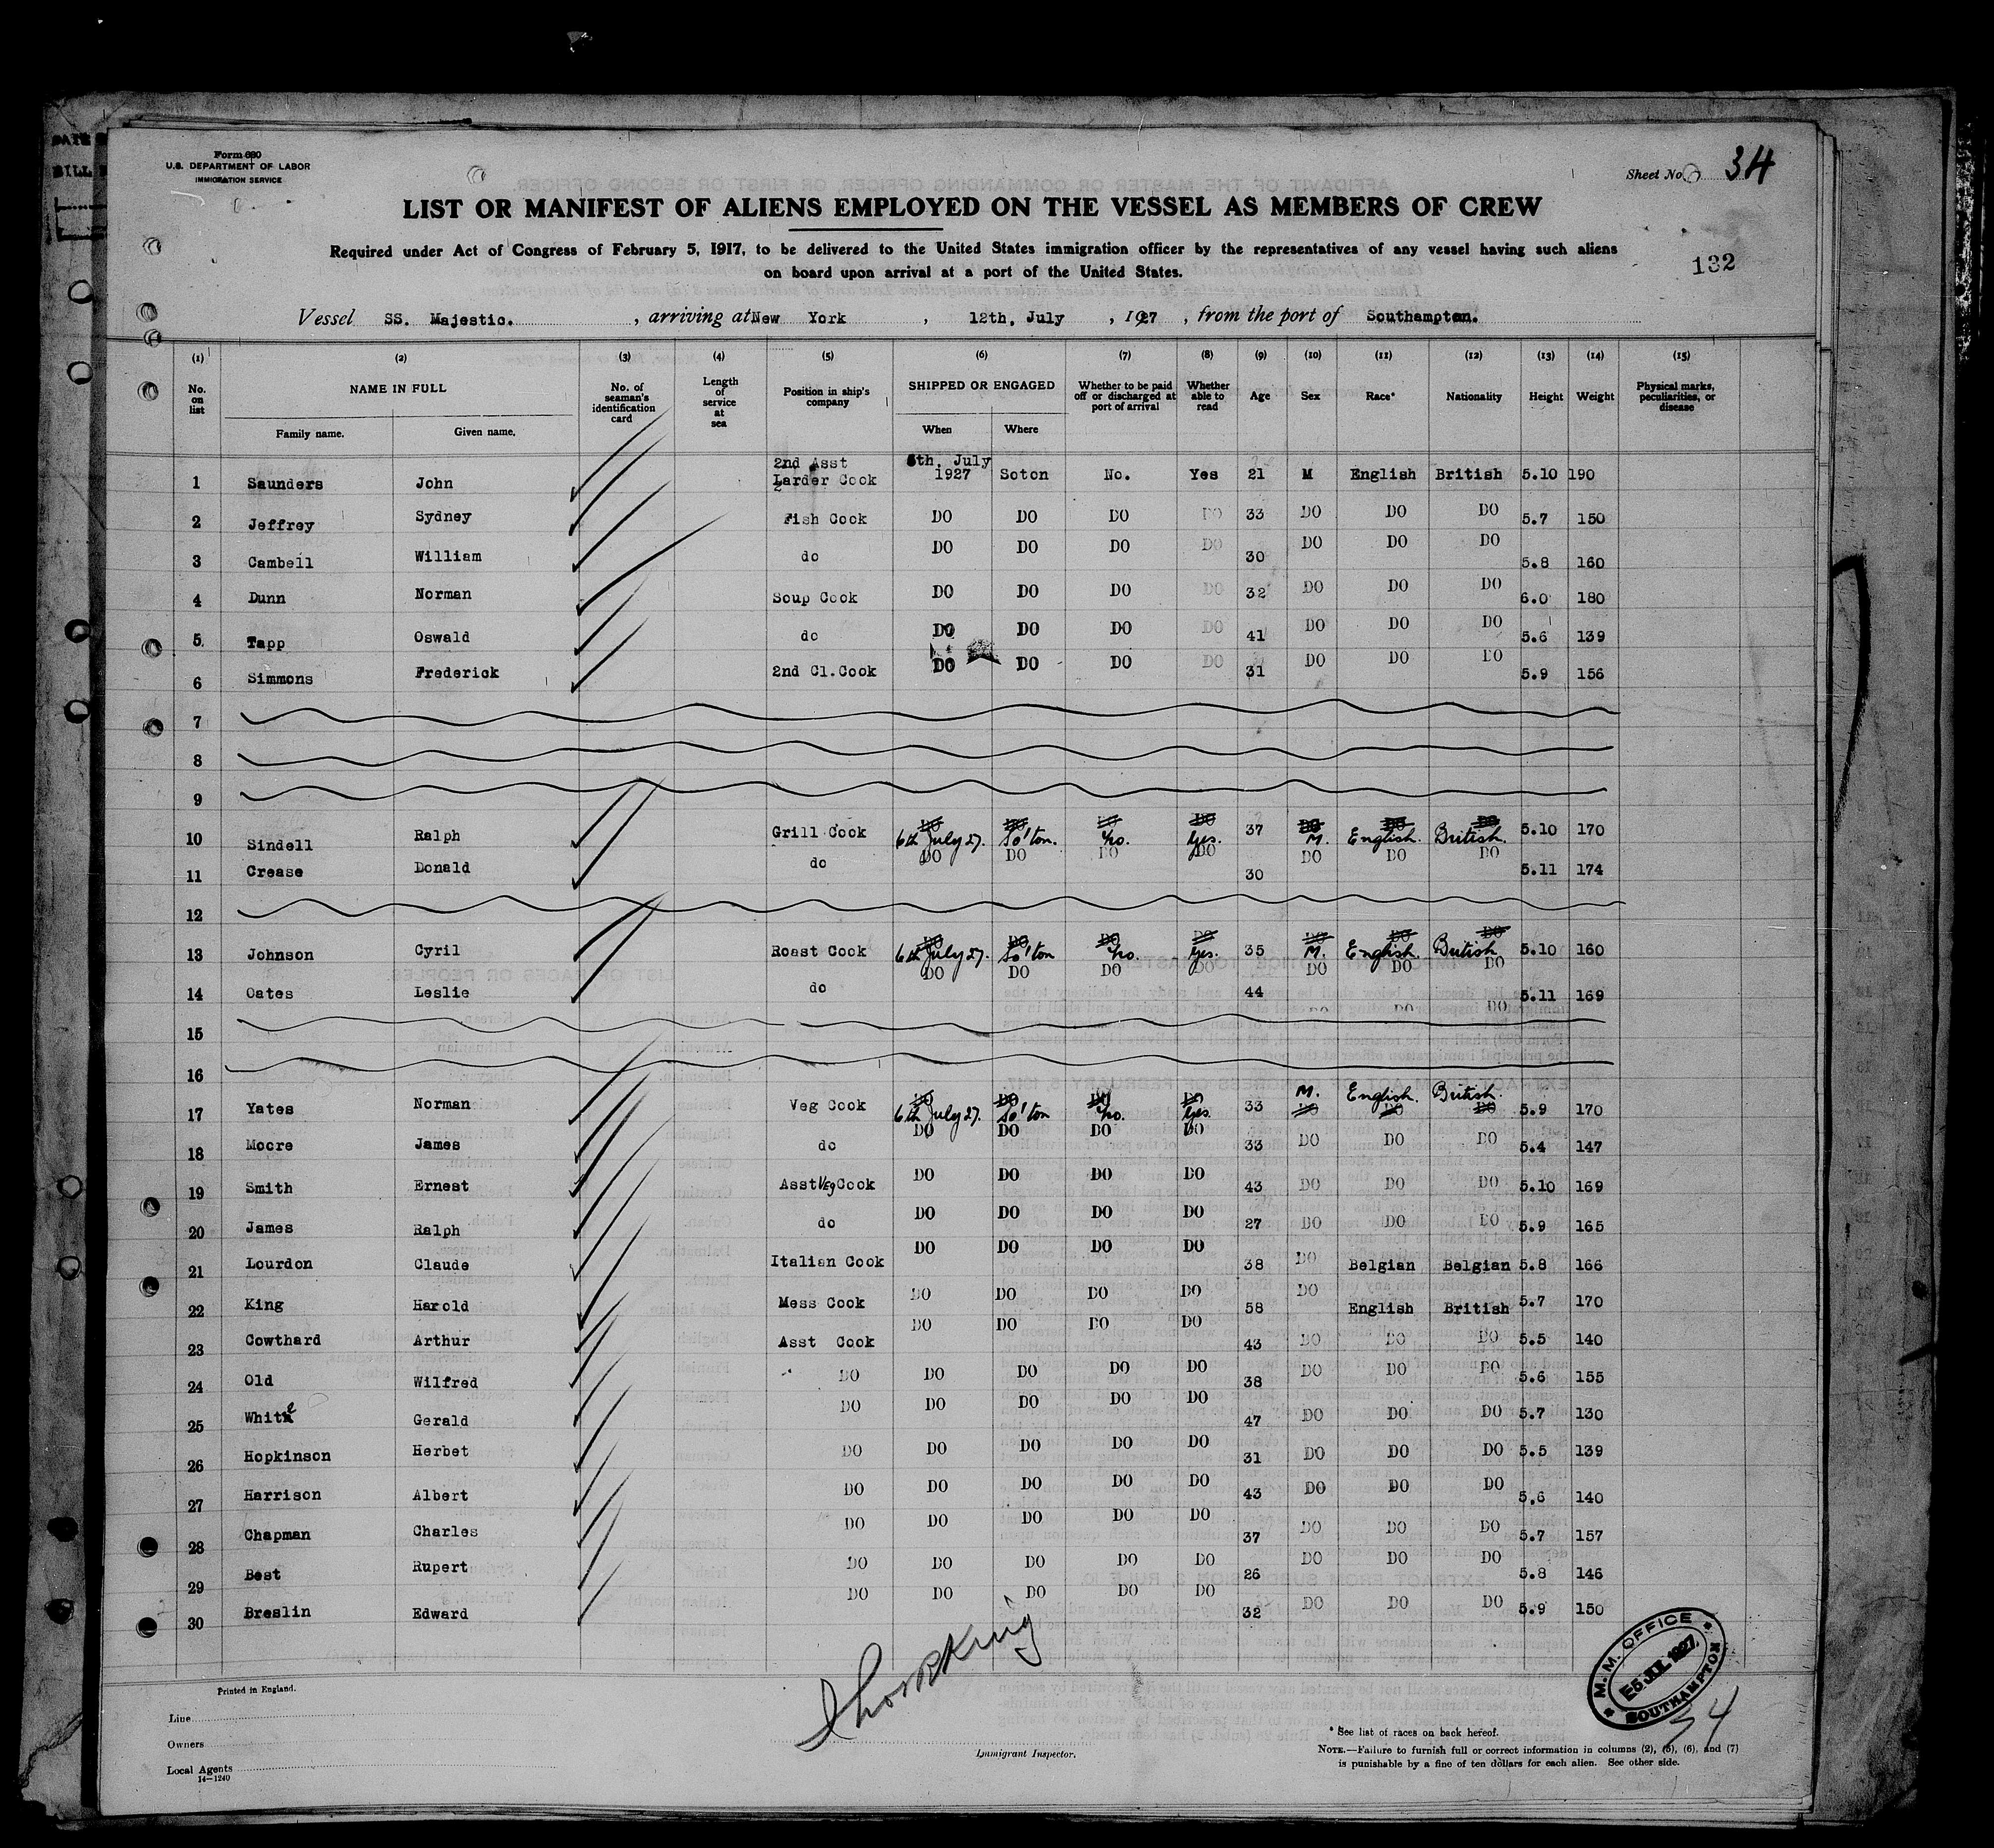 Form 680
U.S. DEPARTMENT OF LABOR
IMMIGRATION SERVICE
Sheet No. 34
LIST OR MANIFEST OF ALIENS EMPLOYED ON THE VESSEL AS MEMBERS OF CREW
Required under Act of Congress of February 5, 1917, to be delivered to the United States immigration officer by the representatives of any vessel having such aliens
on board upon arrival at a port of the United States.
132
Vessel SS. Majestic. , arriving at New York , 12th, July , 1927 , from the port of Southampton.
(1) (2) (3) (4) (5) (6) (7) (8) (9) (10) (11) (12) (13) (14) (15)
No. on list NAME IN FULL Family name. Given name. No. of seaman's identification card Length of service at sea Position in ship's company SHIPPED OR ENGAGED When Where Whether to be paid off or discharged at port of arrival Whether able to read Age Sex Race* Nationality Height Weight Physical marks, peculiarities, or disease
1 Saunders John 2nd Asst Larder Cook 6th, July 1927 Soton No. Yes 21 M English British 5.10 190
2 Jeffrey Sydney Fish Cook DO DO DO DO 33 DO DO DO 5.7 150
3 Cambell William do DO DO DO DO 30 DO DO DO 5.8 160
4 Dunn Norman Soup Cook DO DO DO DO 32 DO DO DO 6.0 180
5 Tapp Oswald do DO DO DO DO 41 DO DO DO 5.6 139
6 Simmons Frederick 2nd Cl.Cook DO DO DO DO 31 DO DO DO 5.9 156
7
8
9
10 Sindell Ralph Grill Cook 6th July 27. So'ton. No. Yes. 37 M. English. British. 5.10 170
11 Crease Donald do DO DO DO DO 30 DO DO DO 5.11 174
12
13 Johnson Cyril Roast Cook 6th July 27. So'ton No. Yes. 35 M. English. British 5.10 160
14 Oates Leslie do DO DO DO DO 44 DO DO DO 5.11 169
15
16
17 Yates Norman Veg Cook 6th July 27. So'ton No. Yes. 33 M. English. British. 5.9 170
18 Moore James do DO DO DO DO 33 DO DO DO 5.4 147
19 Smith Ernest Asst Veg Cook DO DO DO DO 43 DO DO DO 5.10 169
20 James Ralph do DO DO DO DO 27 DO DO DO 5.9 165
21 Lourdon Claude Italian Cook DO DO DO DO 38 DO Belgian Belgian 5.8 166
22 King Harold Mess Cook DO DO DO DO 58 DO English British 5.7 170
23 Cowthard Arthur Asst Cook DO DO DO DO 43 DO DO DO 5.5 140
24 Old Wilfred DO DO DO DO DO 38 DO DO DO 5.6 155
25 White Gerald DO DO DO DO DO 47 DO DO DO 5.7 130
26 Hopkinson Herbet DO DO DO DO DO 31 DO DO DO 5.5 139
27 Harrison Albert DO DO DO DO DO 43 DO DO DO 5.6 140
28 Chapman Charles DO DO DO DO DO 37 DO DO DO 5.7 157
29 Best Rupert DO DO DO DO DO 26 DO DO DO 5.8 146
30 Breslin Edward DO DO DO DO DO 32 DO DO DO 5.9 150
Printed in England.
Line
Owners
Local Agents
14-1240
Immigrant Inspector.
M.M. OFFICE
E5 JUL 1927
SOUTHAMPTON
34
* See list of races on back hereof.
NOTE.—Failure to furnish full or correct information in columns (2), (5), (6), and (7)
is punishable by a fine of ten dollars for each alien. See other side.